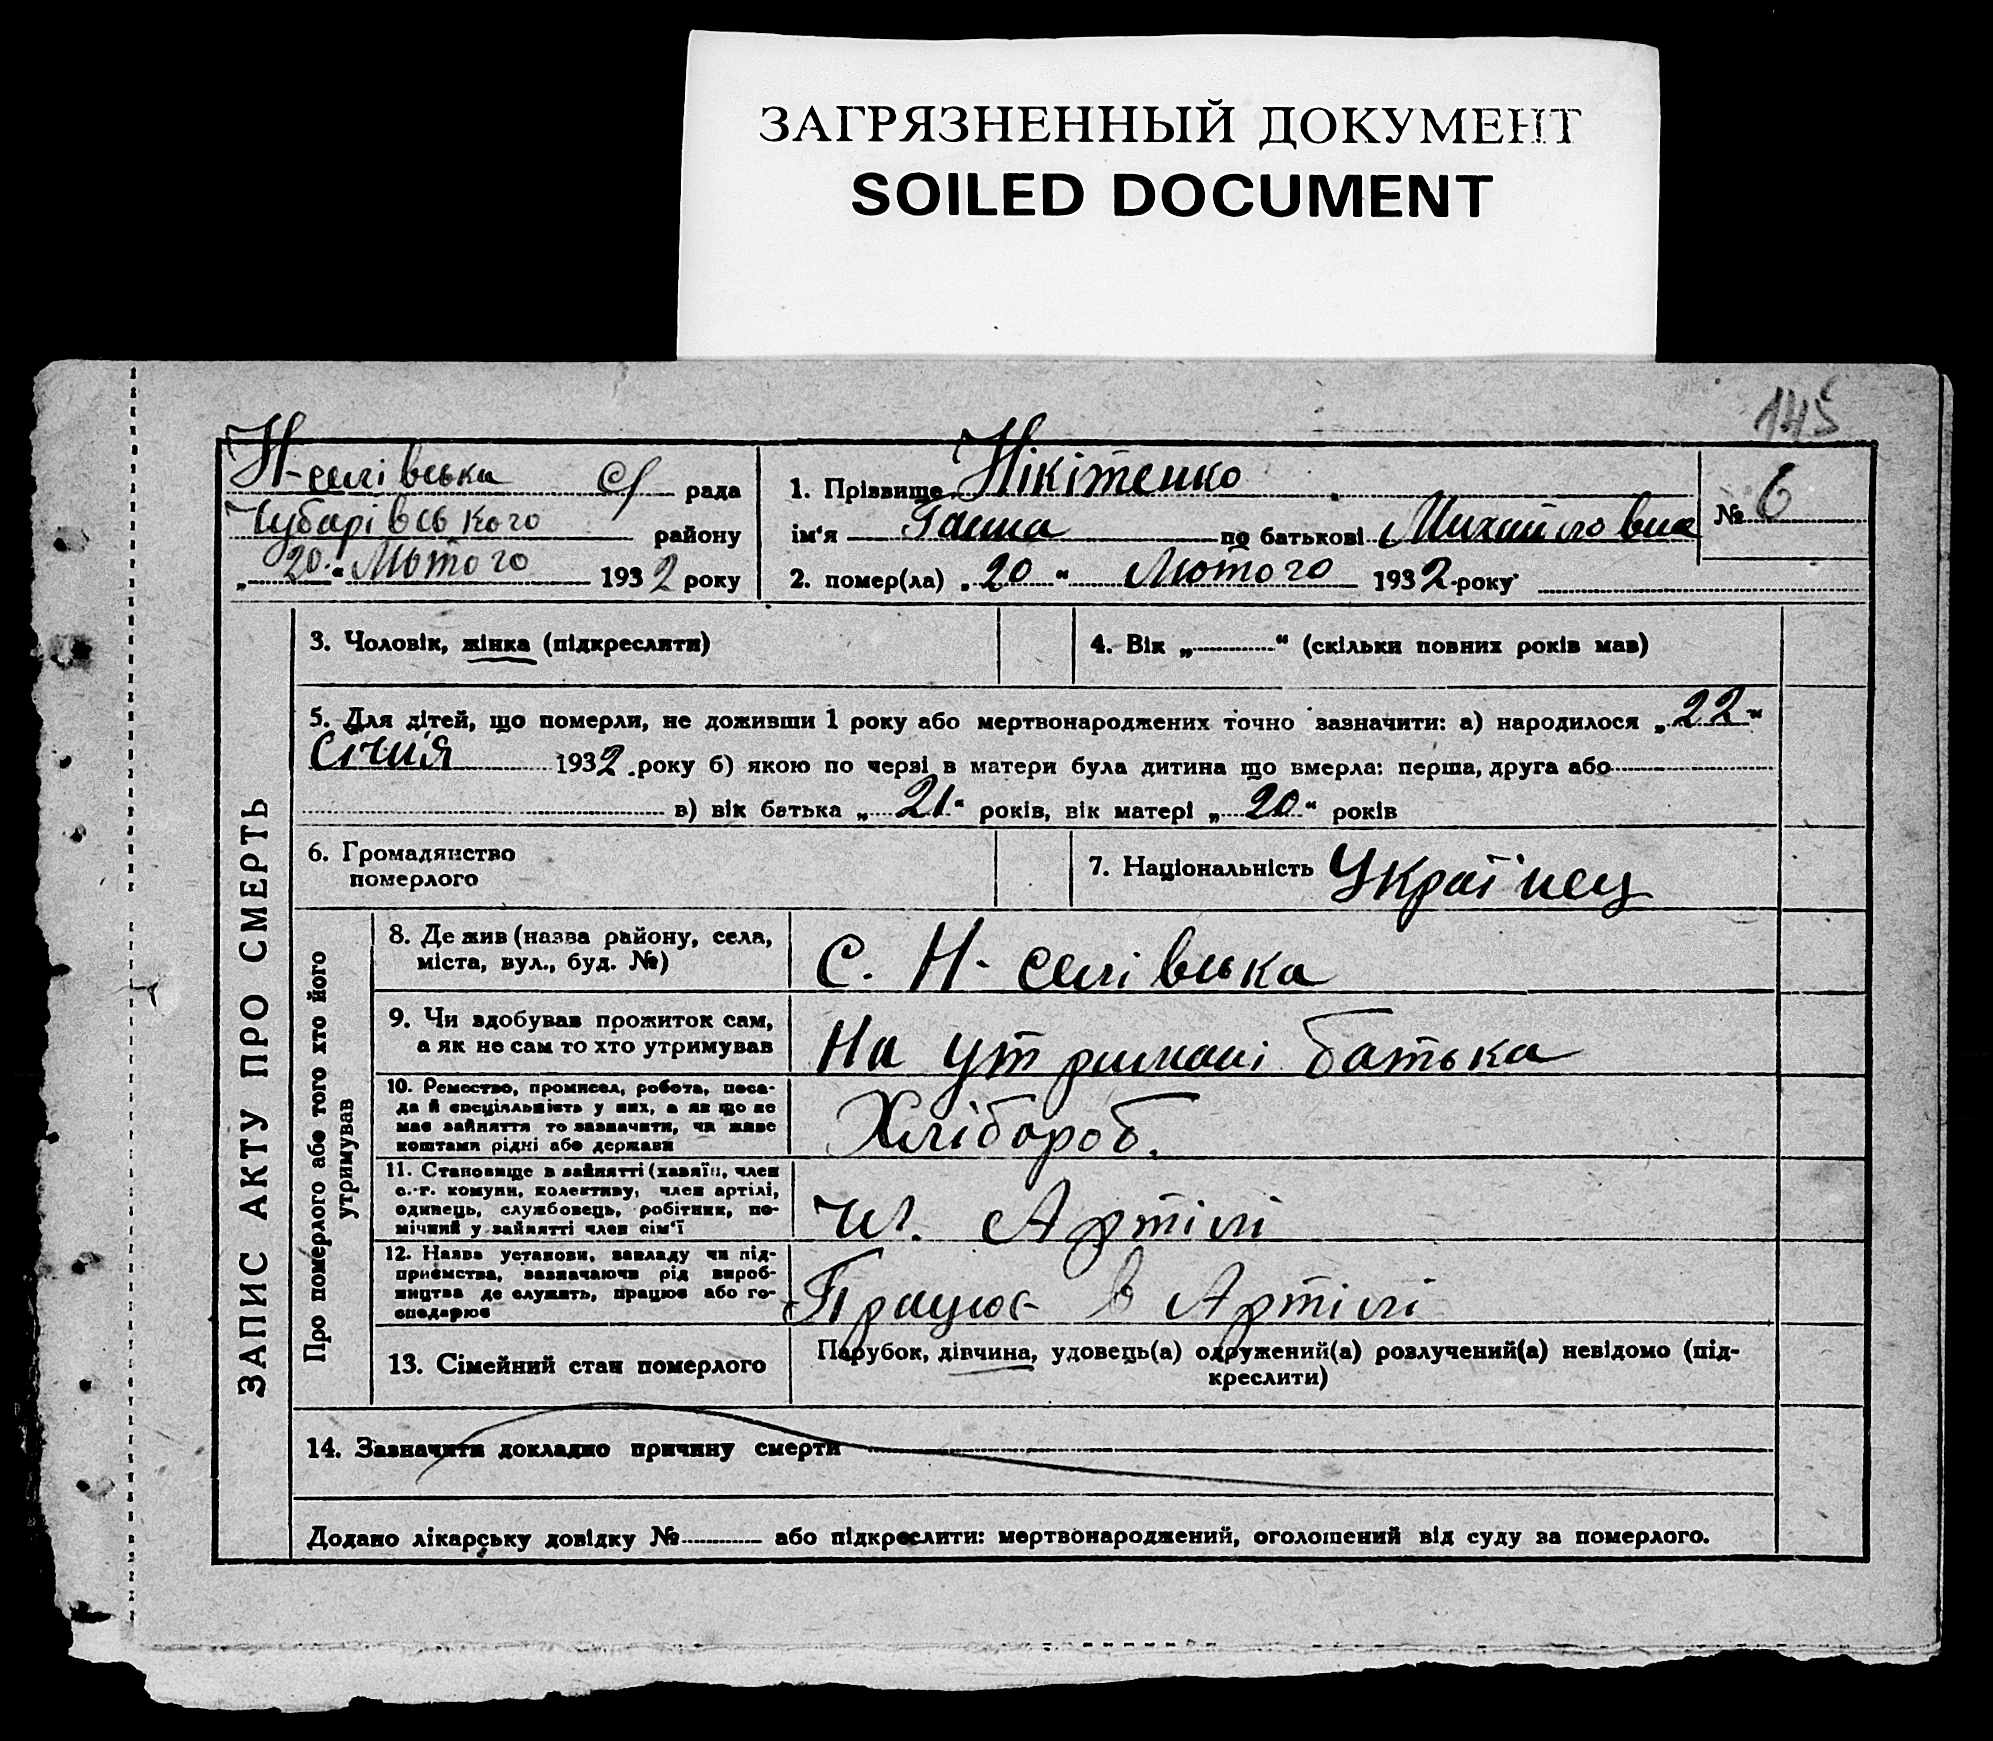 ЗАГРЯЗНЕННЫЙ ДОКУМЕНТ
SOILED DOCUMENT
145
Н-селівська С/ рада
Чубарівського району
„20“ Лютого 1932 року
1. Прізвище Нікітенко
ім‘я Ганна по батькові Михайловна
№ 6
2. помер(ла) „20“ Лютого 1932 року
ЗАПИС АКТУ ПРО СМЕРТЬ
3. Чоловік, жінка (підкреслити)
4. Вік „ “ (скільки повних років мав)
5. Для дітей, що померли, не доживши 1 року або мертвонароджених точно зазначити: а) народилося „22“
Січня 1932 року б) якою по черзі в матери була дитина що вмерла: перша, друга або
в) вік батька „21“ років, вік матері „20“ років
6. Громадянство
померлого
7. Національність Українец
Про померлого або того хто його
утримував
8. Де жив (назва району, села,
міста, вул., буд. №)
С. Н-селівська
9. Чи здобував прожиток сам,
а як не сам то хто утримував
На утримані батька
10. Ремество, промисел, робота, поса-
да й спеціяльність у них, а як що не
має зайняття то зазначити, чи живе
коштами рідні або держави
Хлібороб.
11. Становище в зайнятті (хазяїн, член
с.-г. комуни, колективу, член артілі,
одинець, службовець, робітник, по-
мічний у зайнятті член сім‘ї
Чл. Артілі
12. Назва установи, закладу чи під-
приємства, зазначаючи рід вироб-
ництва де служить, працює або го-
сподарює
Працює в Артілі
13. Сімейний стан померлого
Парубок, дівчина, удовець(а) одружений(а) розлучений(а) невідомо (під-
креслити)
14. Зазначити докладно причину смерти
Додано лікарську довідку № або підкреслити: мертвонароджений, оголошений від суду за померлого.